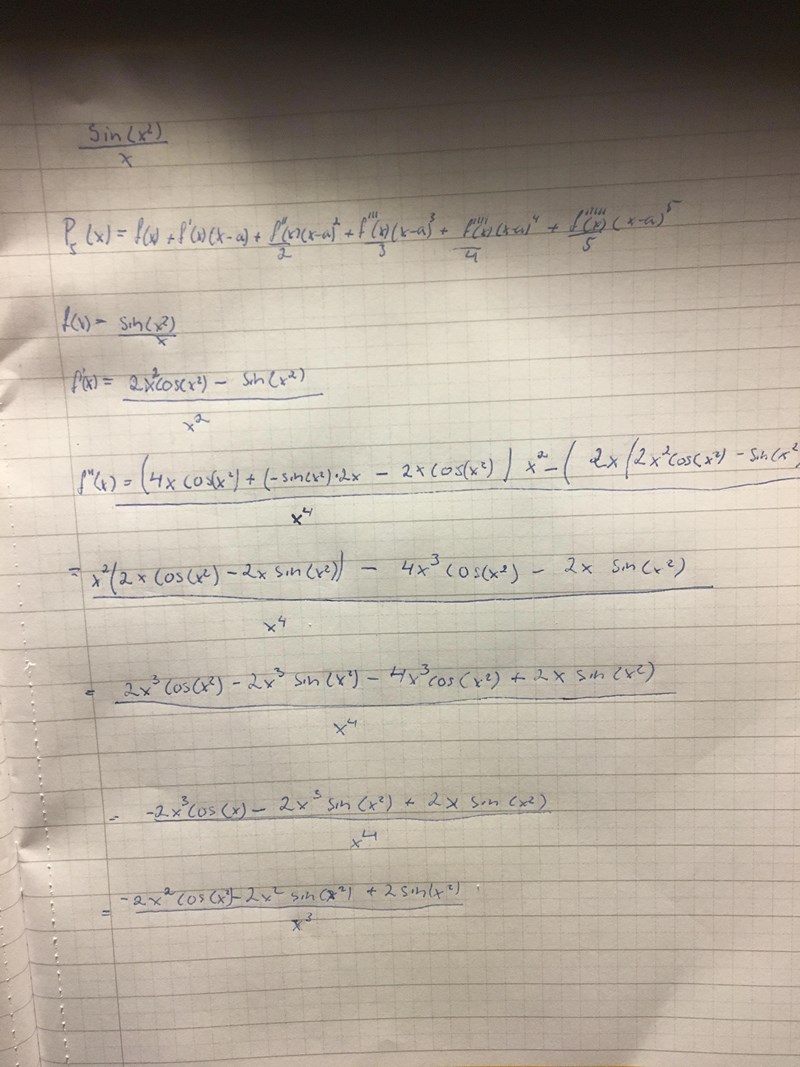 sin(x²)/x
P₅(x) = f(x) + f'(x)(x-a) + f''(x)(x-a)²/2 + f'''(x)(x-a)³/3 + f''''(x)(x-a)⁴/4 + f'''''(x)(x-a)⁵/5
f(x) = sin(x²)/x
f'(x) = (2x²cos(x²) - sin(x²))/x²
f''(x) = (4x cos(x²) + (-sin(x²)·2x - 2x cos(x²)) x² - (2x(2x²cos(x²) - sin(x²
x⁴
= x²(2x cos(x²) - 2x sin(x²)) - 4x³ cos(x²) - 2x sin(x²)
x⁴
= 2x³ cos(x²) - 2x³ sin(x²) - 4x³ cos(x²) + 2x sin(x²)
x⁴
= -2x³ cos(x) - 2x³ sin(x²) + 2x sin(x²)
x⁴
= -2x² cos(x²) - 2x² sin(x²) + 2 sin(x²)
x³